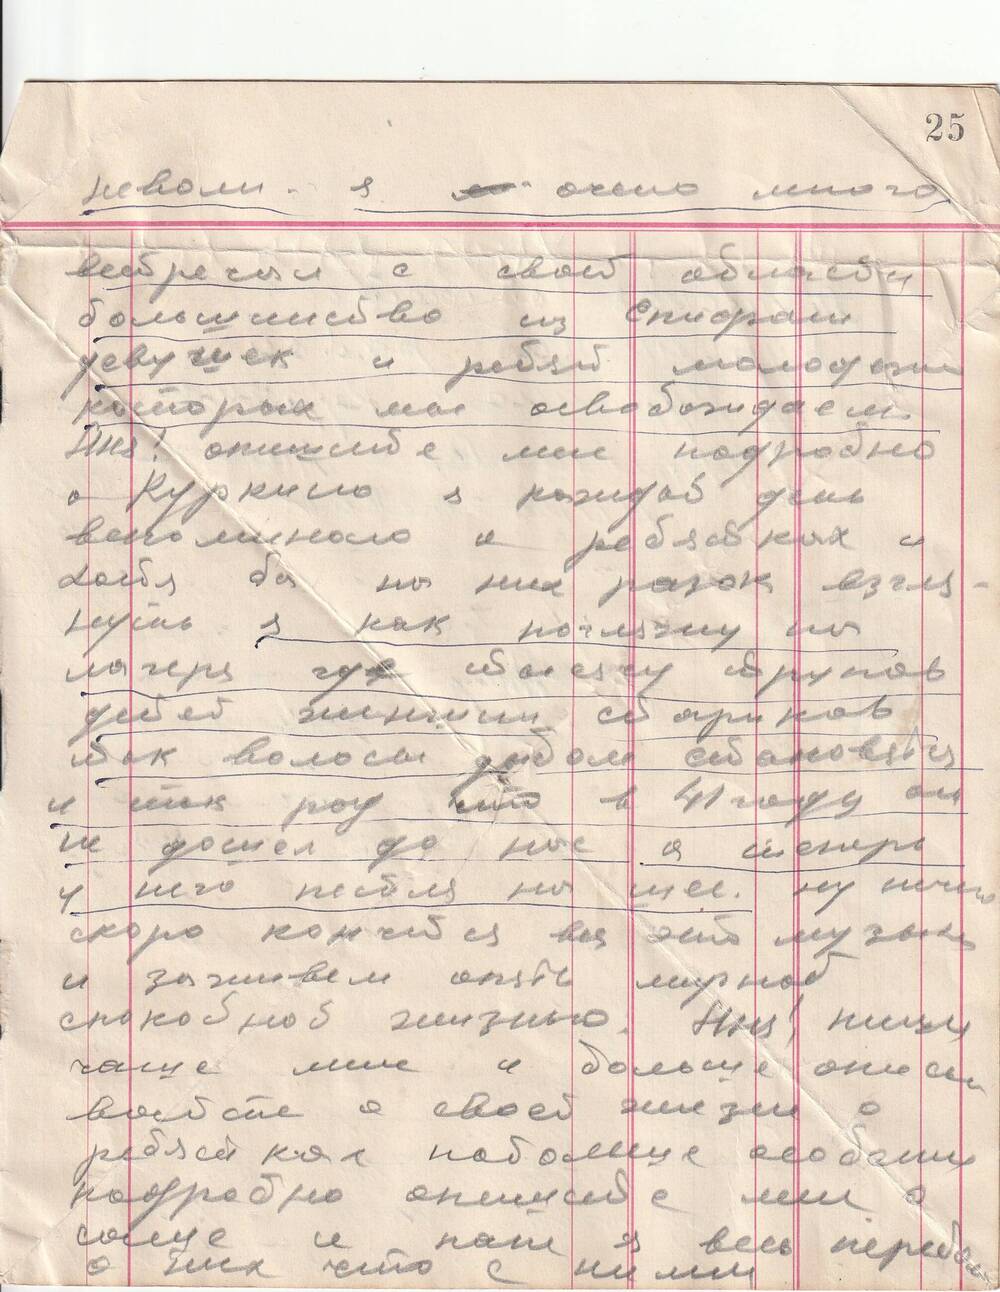 25
неволи. я очень много
встречал с своей области
большинство из
девушек и ребят молодежи
которых мы освобождаем.
Аня! опишите мне подробно
о Куркино я каждый день
вспоминаю о ребятках и
хотя бы на них разок взгля-
нуть я как погляжу на
лагеря где тысячу трупов
детей женщин стариков
так волосы дыбом становятся
и так рад что в 41 году он
не дошел до нас а теперь
у него петля на шее. ну ничего
скоро кончится вся эта музыка
и заживем опять мирной
спокойной жизнью. Аня! пиши
чаще мне и больше описы
вайте о своей жизни о
ребятках побольше особенно
подробно опишите мне о
я весь перебол
о них что с ними